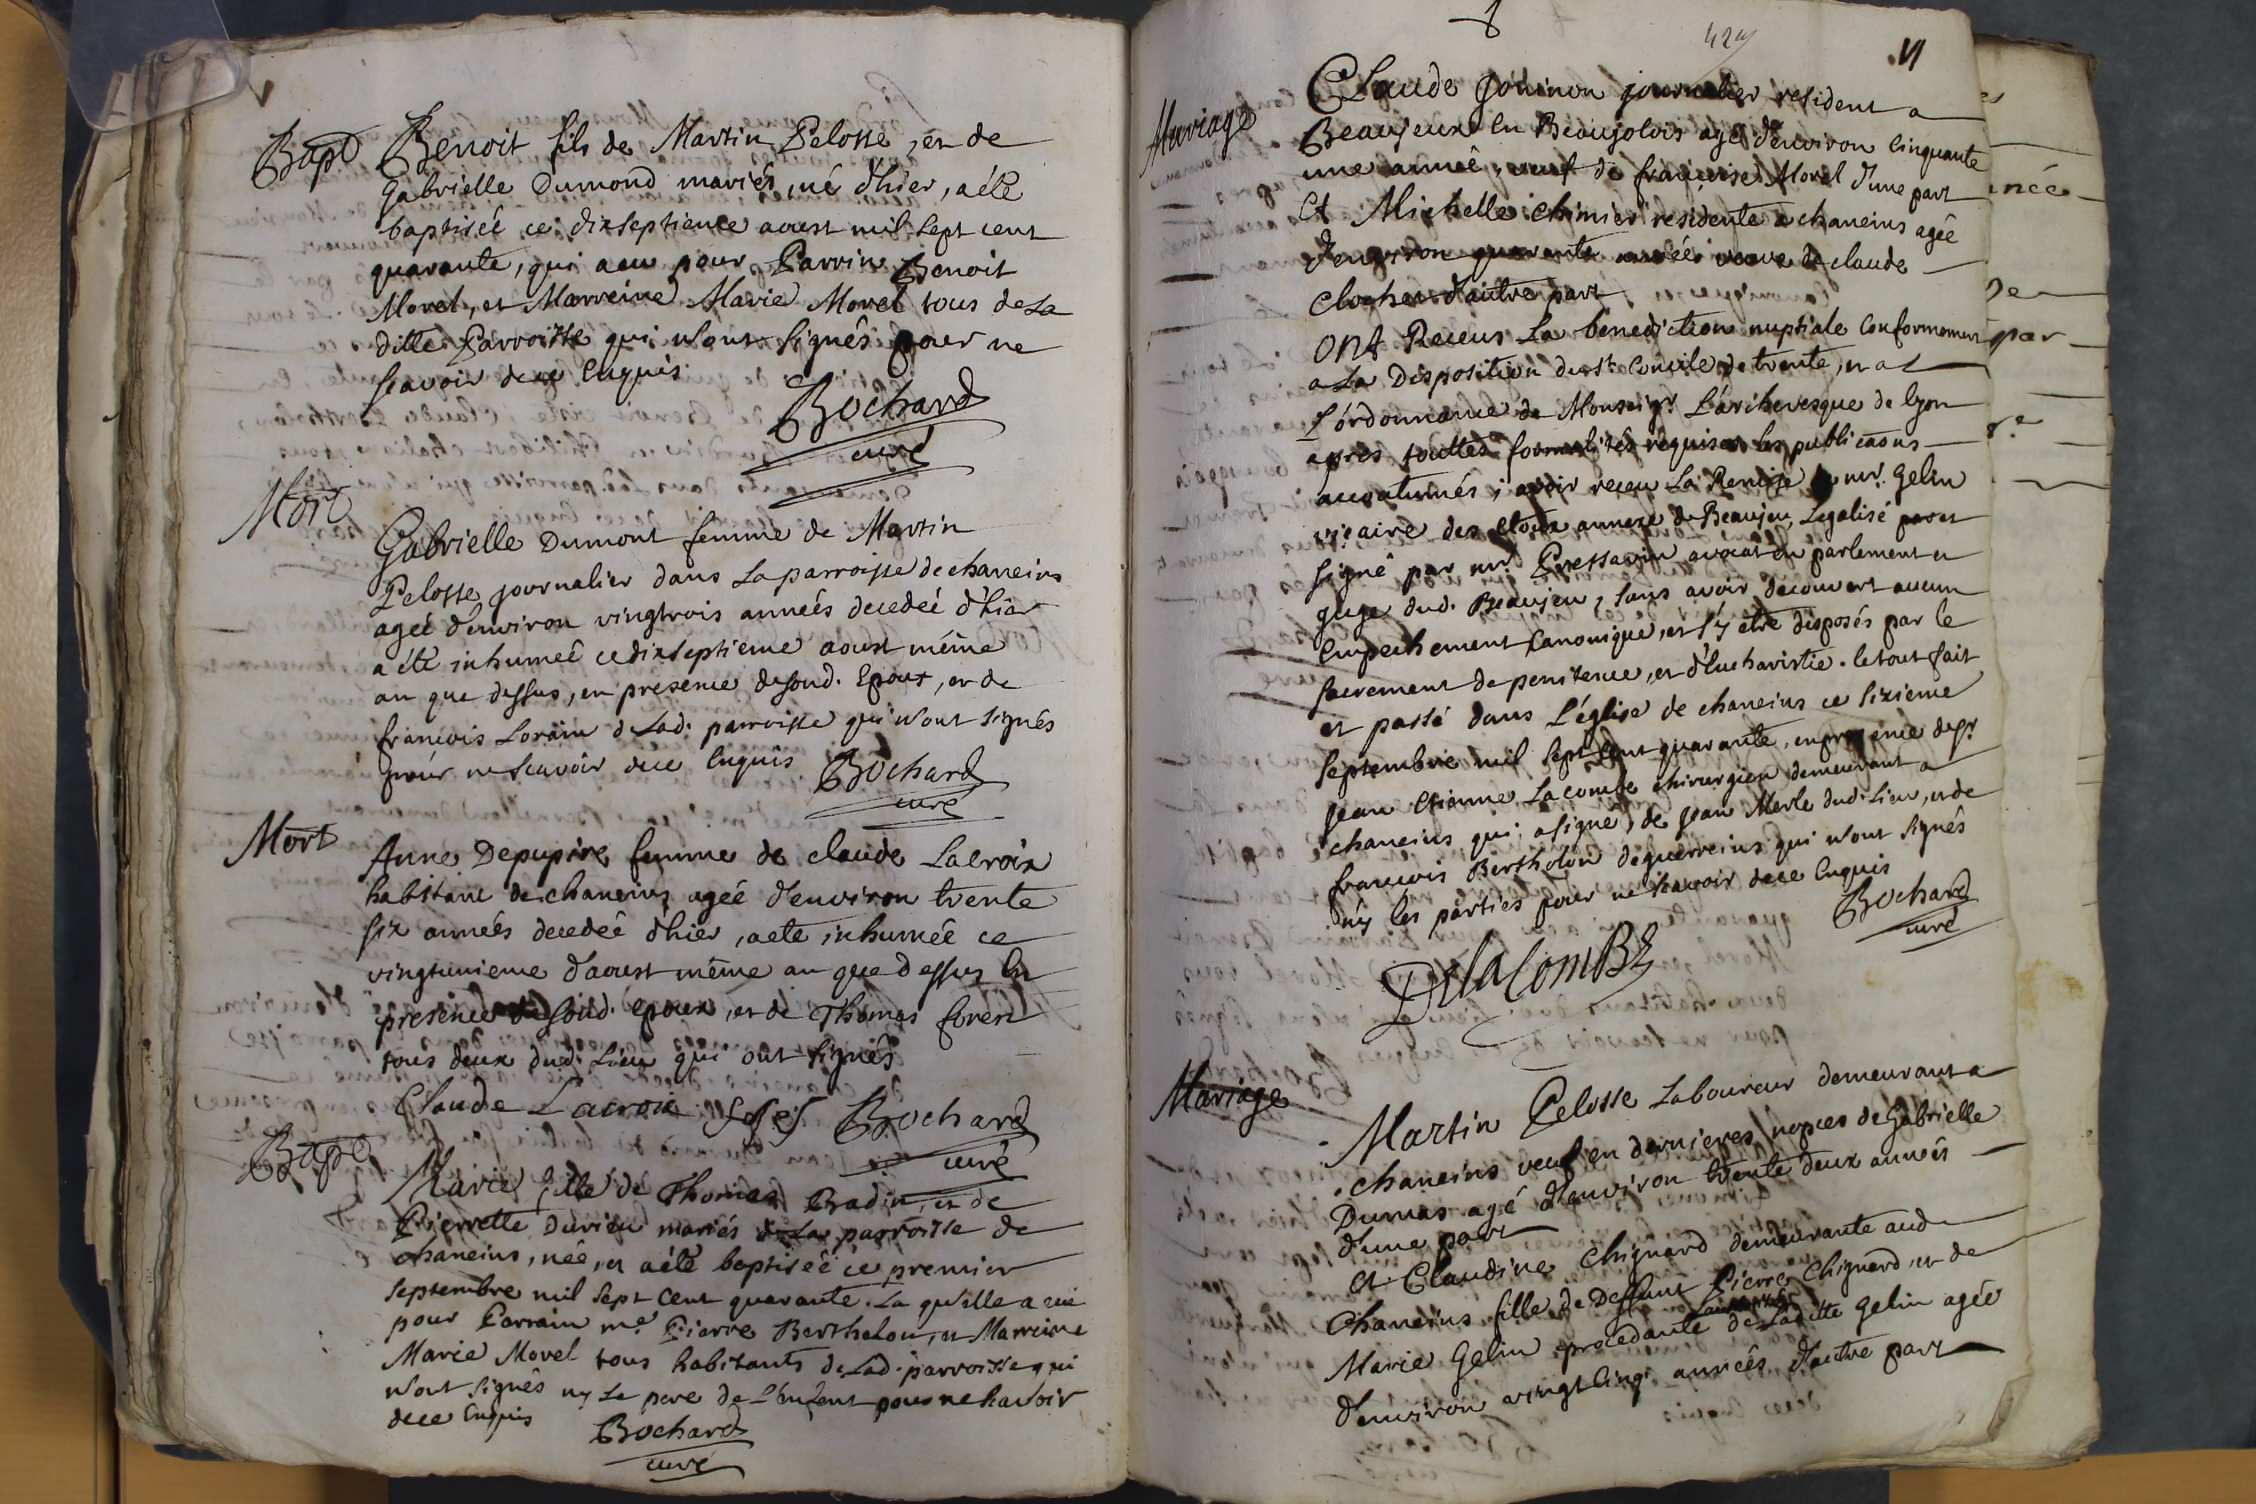 Bapt.
Benoit fils de Martin Pelosse, et de
Gabrielle Dumond mariés, né d'hier, a été
baptiséé ce dixseptieme aoust mil sept cent
quarante, qui a eu pour Parrin Benoit
Morel, et Marreine Marie Morel tous de La
ditte Parroisse qui n'ont signés pour ne
scavoir dece Enquis
Bochard
curé
Mort
Gabrielle Dumont femme de Martin
Pelosse journalier dans La parroisse de chaneins
ageé d'environ vingtrois anneés decedeé d'hier
a été inhumeé ce dixseptieme aoust même
an que dessus, en presence desond. Epoux, et de
francois Lorain de Lad. parroisse qui n'ont signés
pour ne scavoir dece Enquis
Bochard
curé
Mort
Anne Depupire femme de claude Lacroix
habitant de chaneins ageé d'environ trente
six anneés decedeé d'hier, a ete inhumeé ce
vingtunieme d'aoust même an que dessus En
presence de sond. epoux, et de Thomas forest
tous deux dud. Lieu qui ont signés
Claude Lacroix
Bochard
curé
Bapt.
Marie fille de Thomas Badin, et de
Pierrette Durieu mariés de La parroisse de
chaneins, neé, et a été baptiséé ce premier
septembre mil sept cent quarante. La qu'elle a eue
pour Parrain me. Pierre Berthelon, et Marreine
Marie Morel tous habitants de Lad. parroisse qui
n'ont signés ny Le pere de L'enfent pour ne scavoir
dece Enquis
Bochard
curé
VI
Mariage
Claude Gouinon journalier resident a
Beaujeux En Beaujolois agé d'environ Cinquante
une anneé, veuf de francoise Morel d'une part
Et Michelle Chimier residente a chaneins ageé
d'environ quarante anneés veuve de claude
Clocher d'autre part
ONt Receus La benediction nuptiale Conformement
a La Disposition du st. Concile de trente, et a
L'ordonnance de Monseigr. L'archevesque de lyon
apres touttes formalités requises les publicaons
accoutumés, avoir receu La Remise mr. Gelin
vicaire des etoux annexe de Beaujeu Legalisé
signé par mr. Pressavin avocat en parlement et
juge dud. Beaujeu, sans avoir decouvert aucun
Empechement Canonique, et s'y etre disposés par le
sacrement de penitence, et d'Eucharistie. le tout fait
et passé dans L'église de chaneins ce sixieme
septembre mil sept Cent quarante, en presence de sr.
jean etienne Lacombe chirurgien demeurant a
chaneins qui a signé, de jean Merle dud. Lieu, et de
francois Bertholon de guerreins qui n'ont signés
ny les parties pour ne scavoir dece Enquis
Bochard
curé
DelaComBe
Mariage
Martin Pelosse Laboureur demeurant a
chaneins veuf en dernieres nopces de Gabrielle
Dumas agé d'environ trente deux anneés
d'une part
et Claudine Chignard demeurante aud.
Chaneins fille de Deffunt Pierre Chignard, et de
Marie Gelin procedante de Laditte Gelin ageé
d'environ vingt Cinq anneés d'autre part